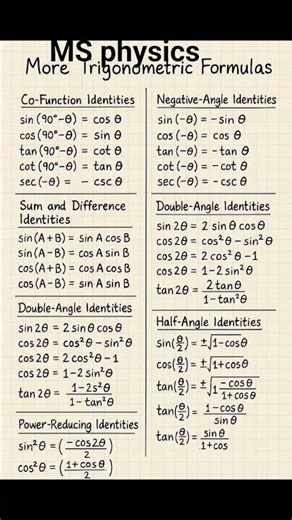 MS physics
More Trigonometric Formulas
Co-Function Identities
sin (90°-θ) = cos θ
cos (90°-θ) = sin θ
tan (90°-θ) = cot θ
cot (90°-θ) = tan θ
sec (-θ) = - csc θ
Sum and Difference
Identities
sin (A+B) = sin A cos B
sin (A-B) = cos A sin B
cos (A+B) = cos A cos B
cos (A-B) = sin A sin B
Double-Angle Identities
sin 2θ = 2 sin θ cos θ
cos 2θ = cos²θ - sin²θ
cos 2θ = 2 cos²θ - 1
cos 2θ = 1 - 2 sin²θ
tan 2θ = 1-2s²θ / 1-tan²θ
Power-Reducing Identities
sin²θ = (-cos2θ / 2)
cos²θ = (1+cosθ / 2)
Negative-Angle Identities
sin (-θ) = - sin θ
cos (-θ) = cos θ
tan (-θ) = - tan θ
cot (-θ) = - cot θ
sec (-θ) = - csc θ
Double-Angle Identities
sin 2θ = 2 sin θ cos θ
cos 2θ = cos²θ - sin²θ
cos 2θ = 2 cos²θ - 1
cos 2θ = 1 - 2 sin²θ
tan 2θ = 2 tan θ / 1-tan²θ
Half-Angle Identities
sin(θ/2) = ±√1-cosθ
cos(θ/2) = ±√1+cosθ
tan(θ/2) = ±√1 -cosθ / 1+cosθ
tan(θ/2) = 1-cosθ / sin θ
tan(θ/2) = sin θ / 1+cos